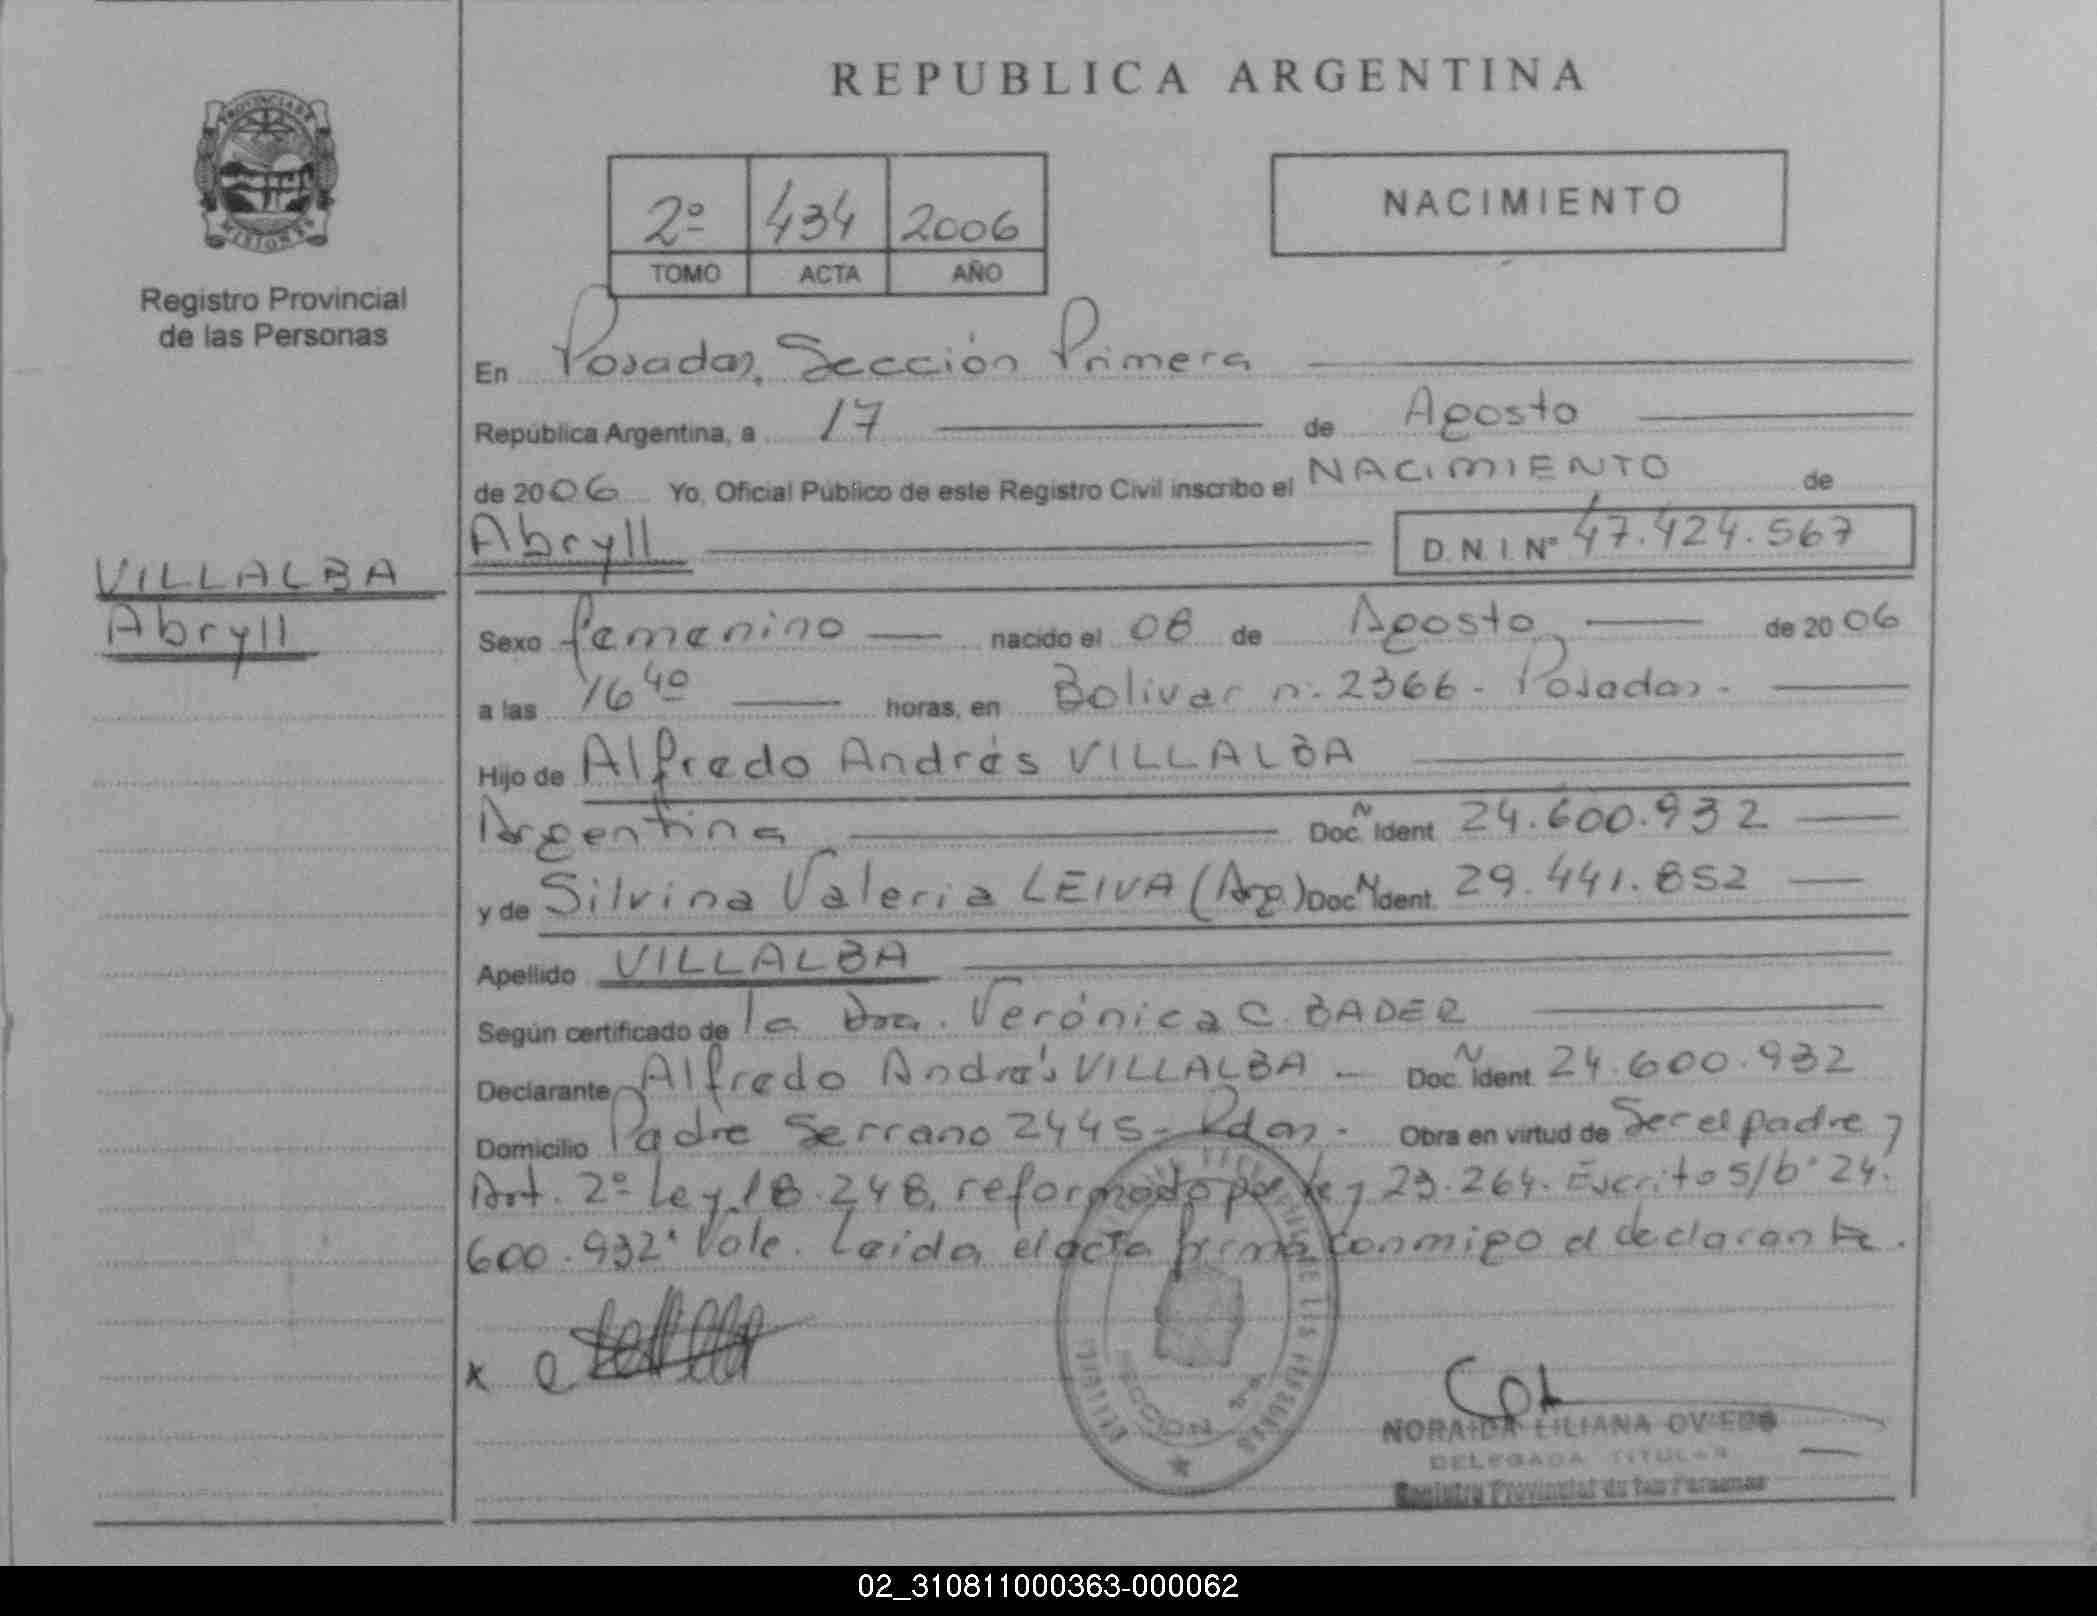 REPUBLICA ARGENTINA
PROVINCIA DE
MISIONES
Registro Provincial
de las Personas
2º 434 2006
TOMO ACTA AÑO
NACIMIENTO
En Posadas, Sección Primera
República Argentina, a 17 de Agosto
de 2006 Yo, Oficial Público de este Registro Civil inscribo el NACIMIENTO de
Abryll D.N.I.Nº 47.424.567
VILLALBA
Abryll
Sexo femenino nacido el 08 de Agosto de 2006
a las 16 40 horas, en Bolivar n. 2366 - Posadas.
Hijo de Alfredo Andrés VILLALBA
Argentina Doc. Ident 24.600.932
y de Silvina Valeria LEIVA (Arg) Doc. Ident. 29.441.852
Apellido VILLALBA
Según certificado de la Dra. Verónica C. BADER
Declarante Alfredo Andrés VILLALBA - Doc. Ident 24.600.932
Domicilio Padre Serrano 2445 - Pdas. Obra en virtud de Ser el padre y
Art. 2º Ley 18.248, reformado por Ley 23.264. Escrito S/b "24.
600.932" Vale. Leida el acta firma conmigo el declarante.
x
NORAIDA LILIANA OVIEDO
DELEGADA TITULAR
Registro Provincial de las Personas
02_310811000363-000062